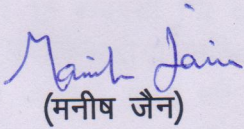 Manish Jain
(मनीष जैन)